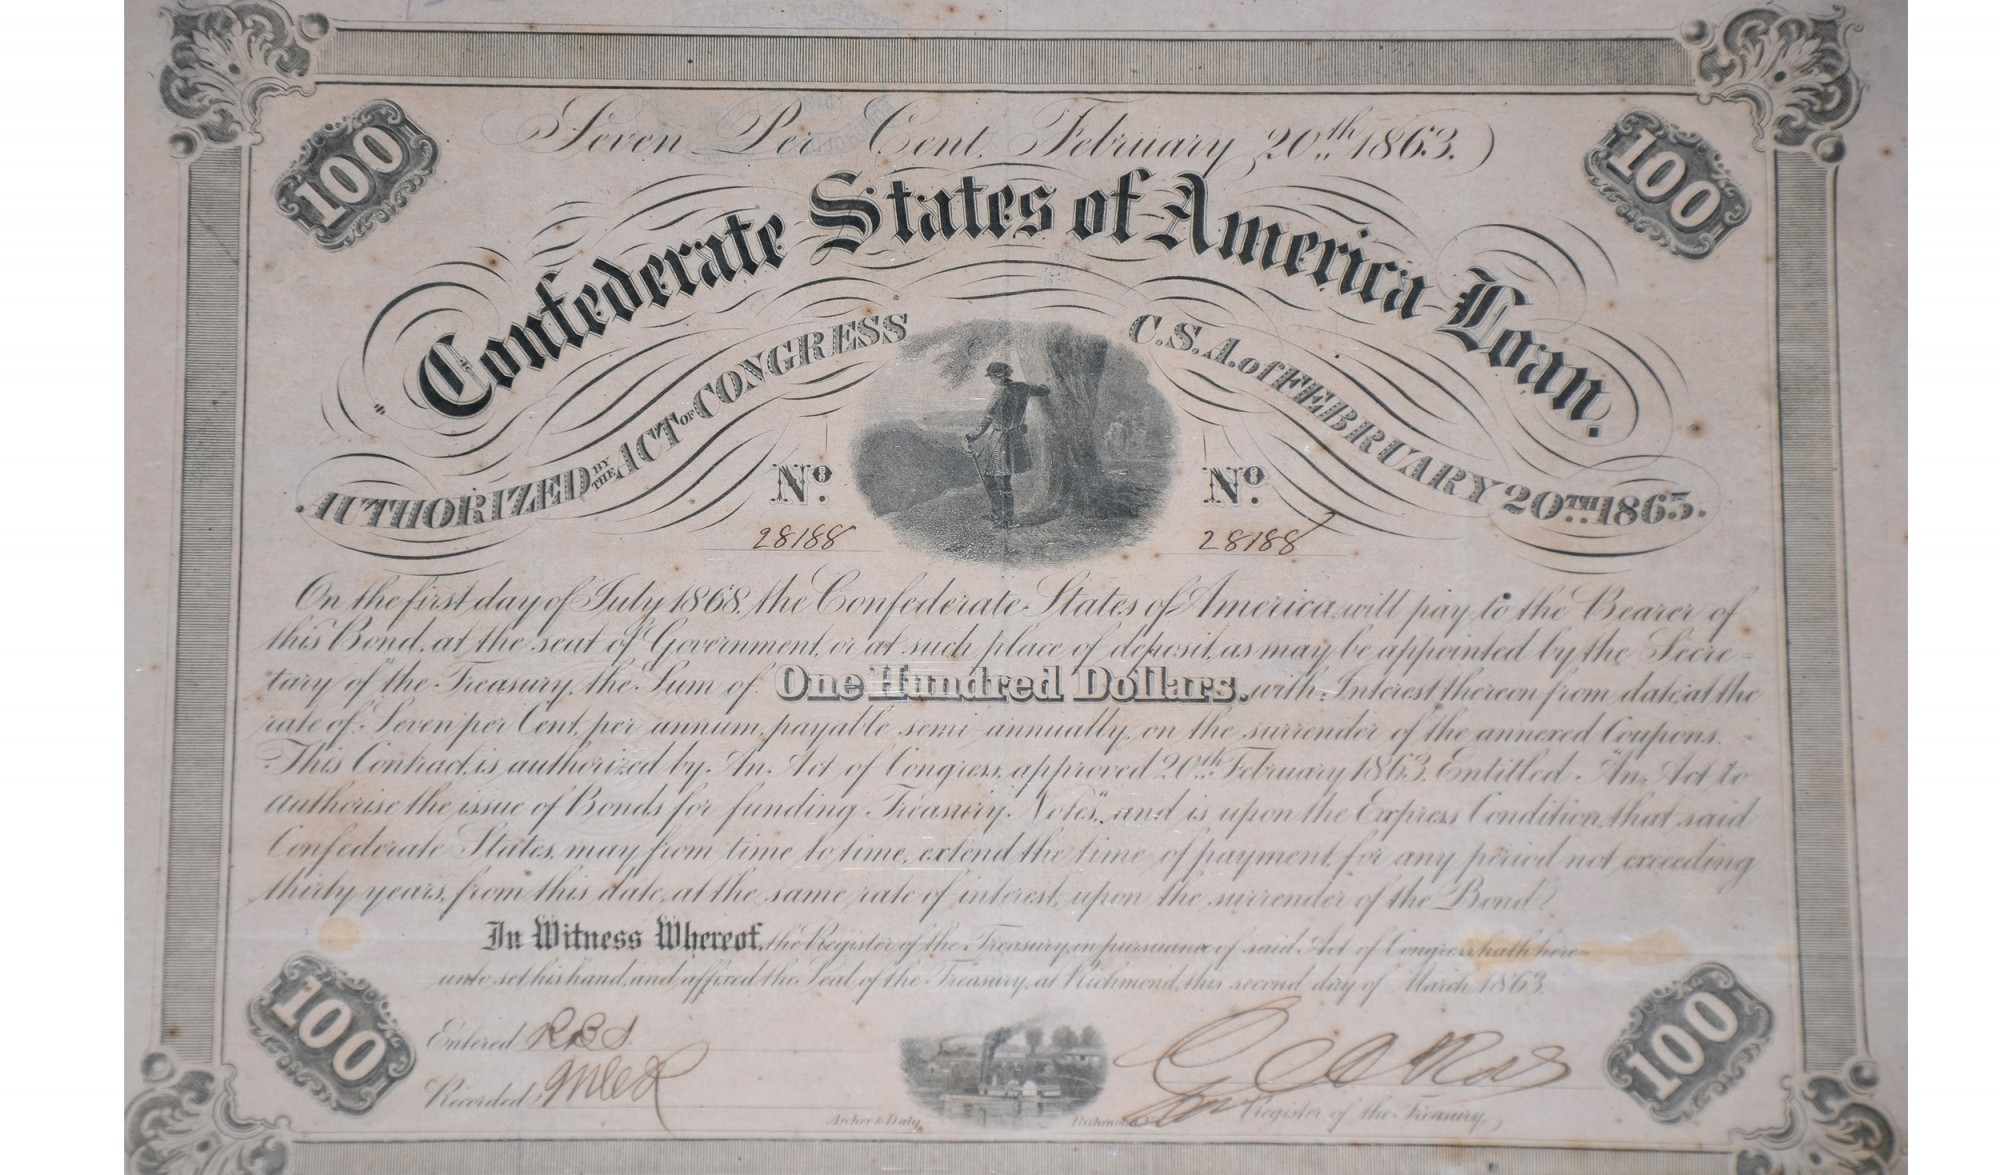 Seven Per Cent. February 20th 1863.
100
100
Confederate States of America Loan.
AUTHORIZED BY THE ACT OF CONGRESS C.S.A. of FEBRUARY 20TH 1863.
No. No.
28188 28188
On the first day of July 1868, the Confederate States of America, will pay to the Bearer of
this Bond, at the seat of Government, or at such place of deposit, as may be appointed by the Secre=
tary of the Treasury, the Sum of One Hundred Dollars. with Interest thereon from date, at the
rate of Seven per Cent, per annum, payable semi annually, on the surrender of the annexed Coupons.
This Contract, is authorized by An Act of Congress, approved 20th February 1863, Entitled "An Act to
authorise the issue of Bonds for funding Treasury Notes", and is upon the Express Condition, that said
Confederate States, may from time to time, extend the time of payment, for any period not exceeding
thirty years, from this date, at the same rate of interest, upon the surrender of the Bond.
In Witness Whereof, the Register of the Treasury, in pursuance of said Act of Congress, hath here=
unto set his hand, and affixed the Seal of the Treasury, at Richmond, this second day of March 1863.
100
100
Entered RBS
Recorded
Register of the Treasury.
Archer & Daly, Richmond